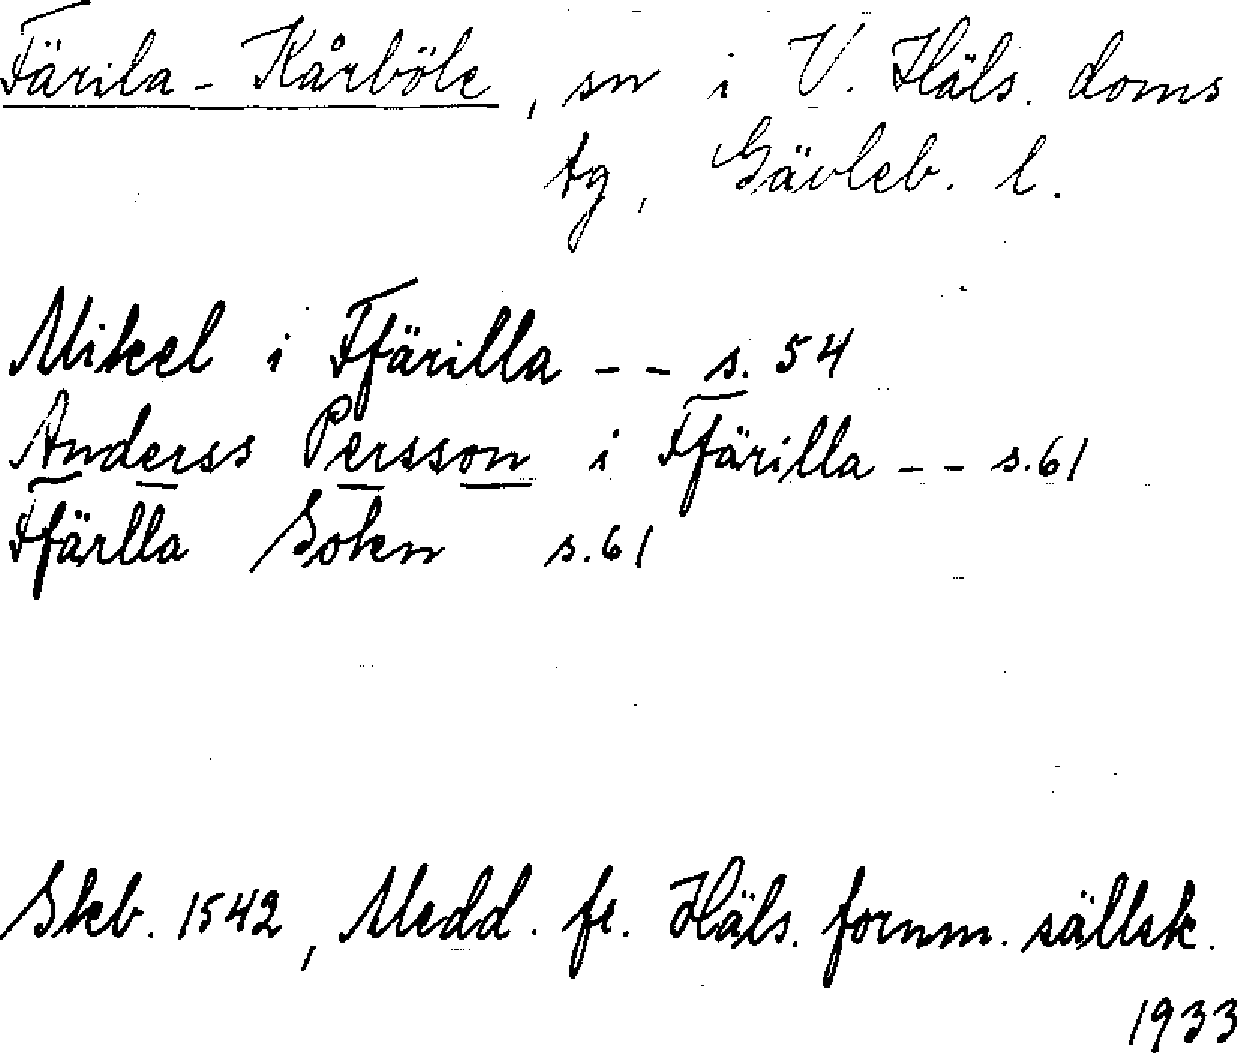 Färila-Kårböle, sn i V. Häls. doms
tg, Gävleb. l.
Mikel i Ffärilla -- s. 54
Anderss Persson i Ffärilla -- s. 61
Ffärlla Soken s. 61
Skb. 1542, Medd. fr. Häls. fornm. sällsk.
1933